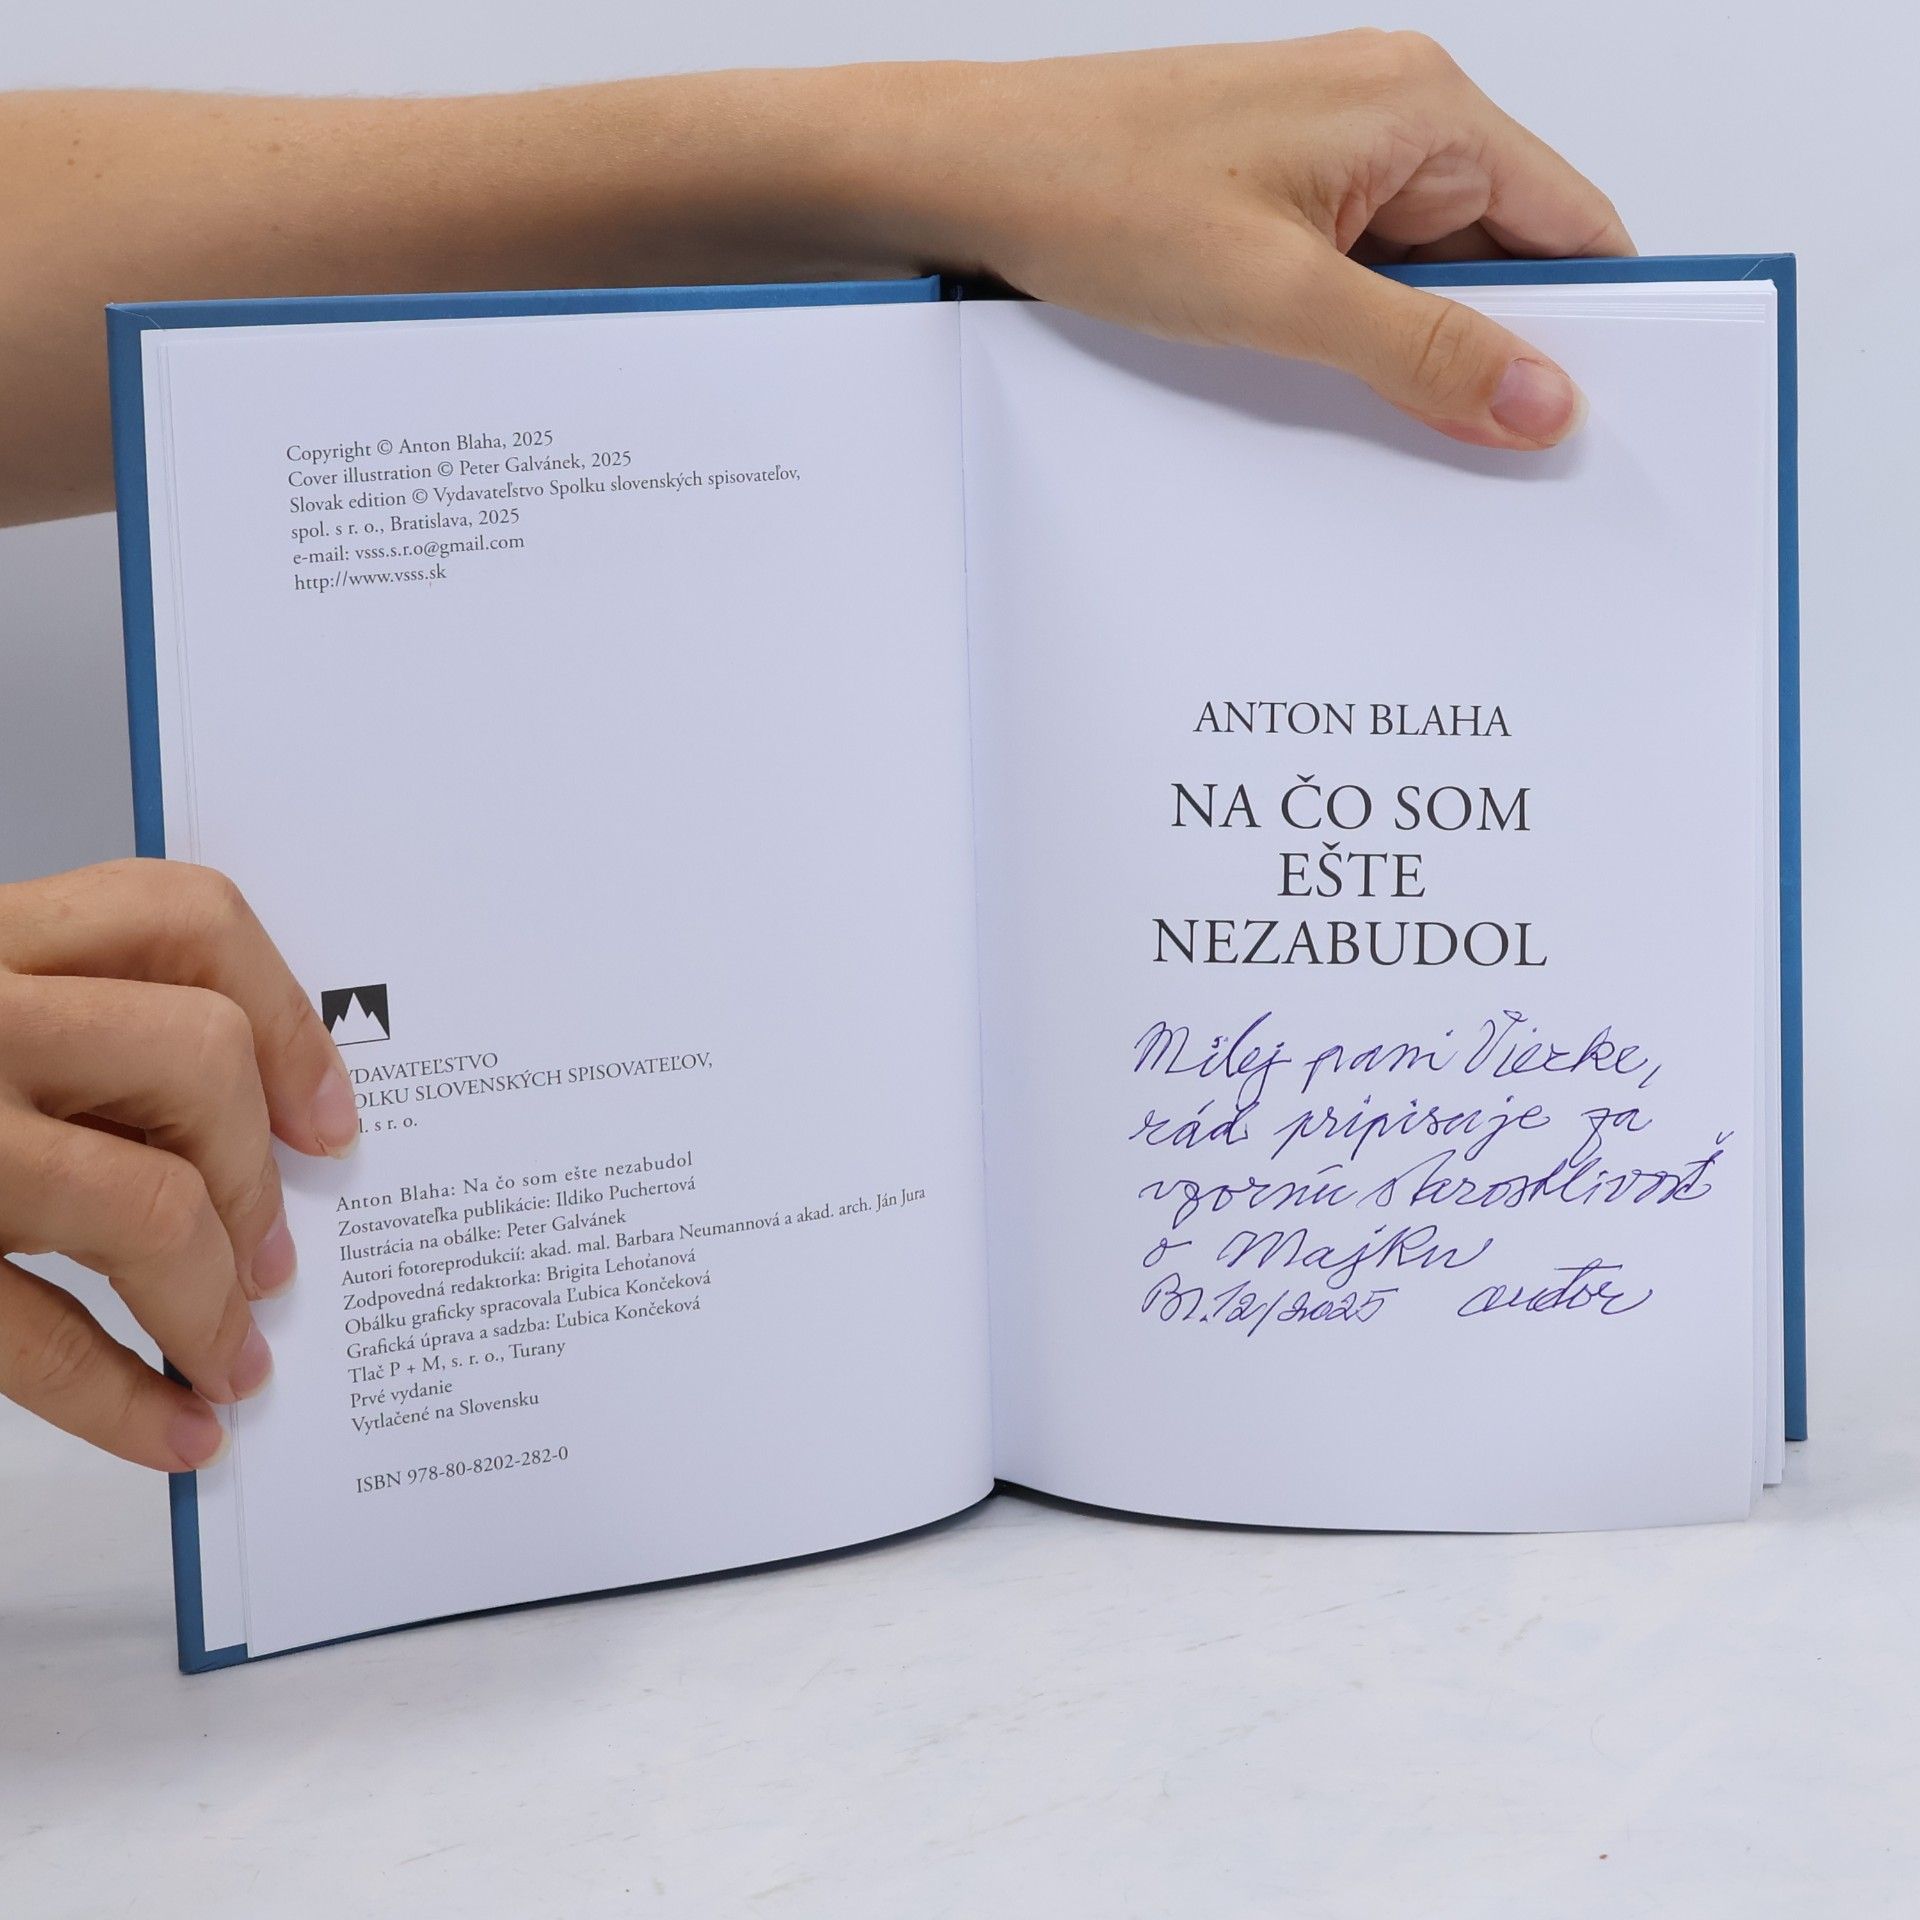 Copyright © Anton Blaha, 2025
Cover illustration © Peter Galvánek, 2025
Slovak edition © Vydavateľstvo Spolku slovenských spisovateľov,
spol. s r. o., Bratislava, 2025
e-mail: vsss.s.r.o@gmail.com
http://www.vsss.sk
YDAVATEĽSTVO
OLKU SLOVENSKÝCH SPISOVATEĽOV,
l. s r. o.
Anton Blaha: Na čo som ešte nezabudol
Zostavovateľka publikácie: Ildiko Puchertová
Ilustrácia na obálke: Peter Galvánek
Autori fotoreprodukcií: akad. mal. Barbara Neumannová a akad. arch. Ján Jura
Zodpovedná redaktorka: Brigita Lehoťanová
Obálku graficky spracovala Ľubica Končeková
Grafická úprava a sadzba: Ľubica Končeková
Tlač P + M, s. r. o., Turany
Prvé vydanie
Vytlačené na Slovensku
ISBN 978-80-8202-282-0
ANTON BLAHA
NA ČO SOM
EŠTE
NEZABUDOL
Milej pani Vierke,
rád pripisuje za
vzornú starostlivosť
o Majku
Bl. 12/2025 autor